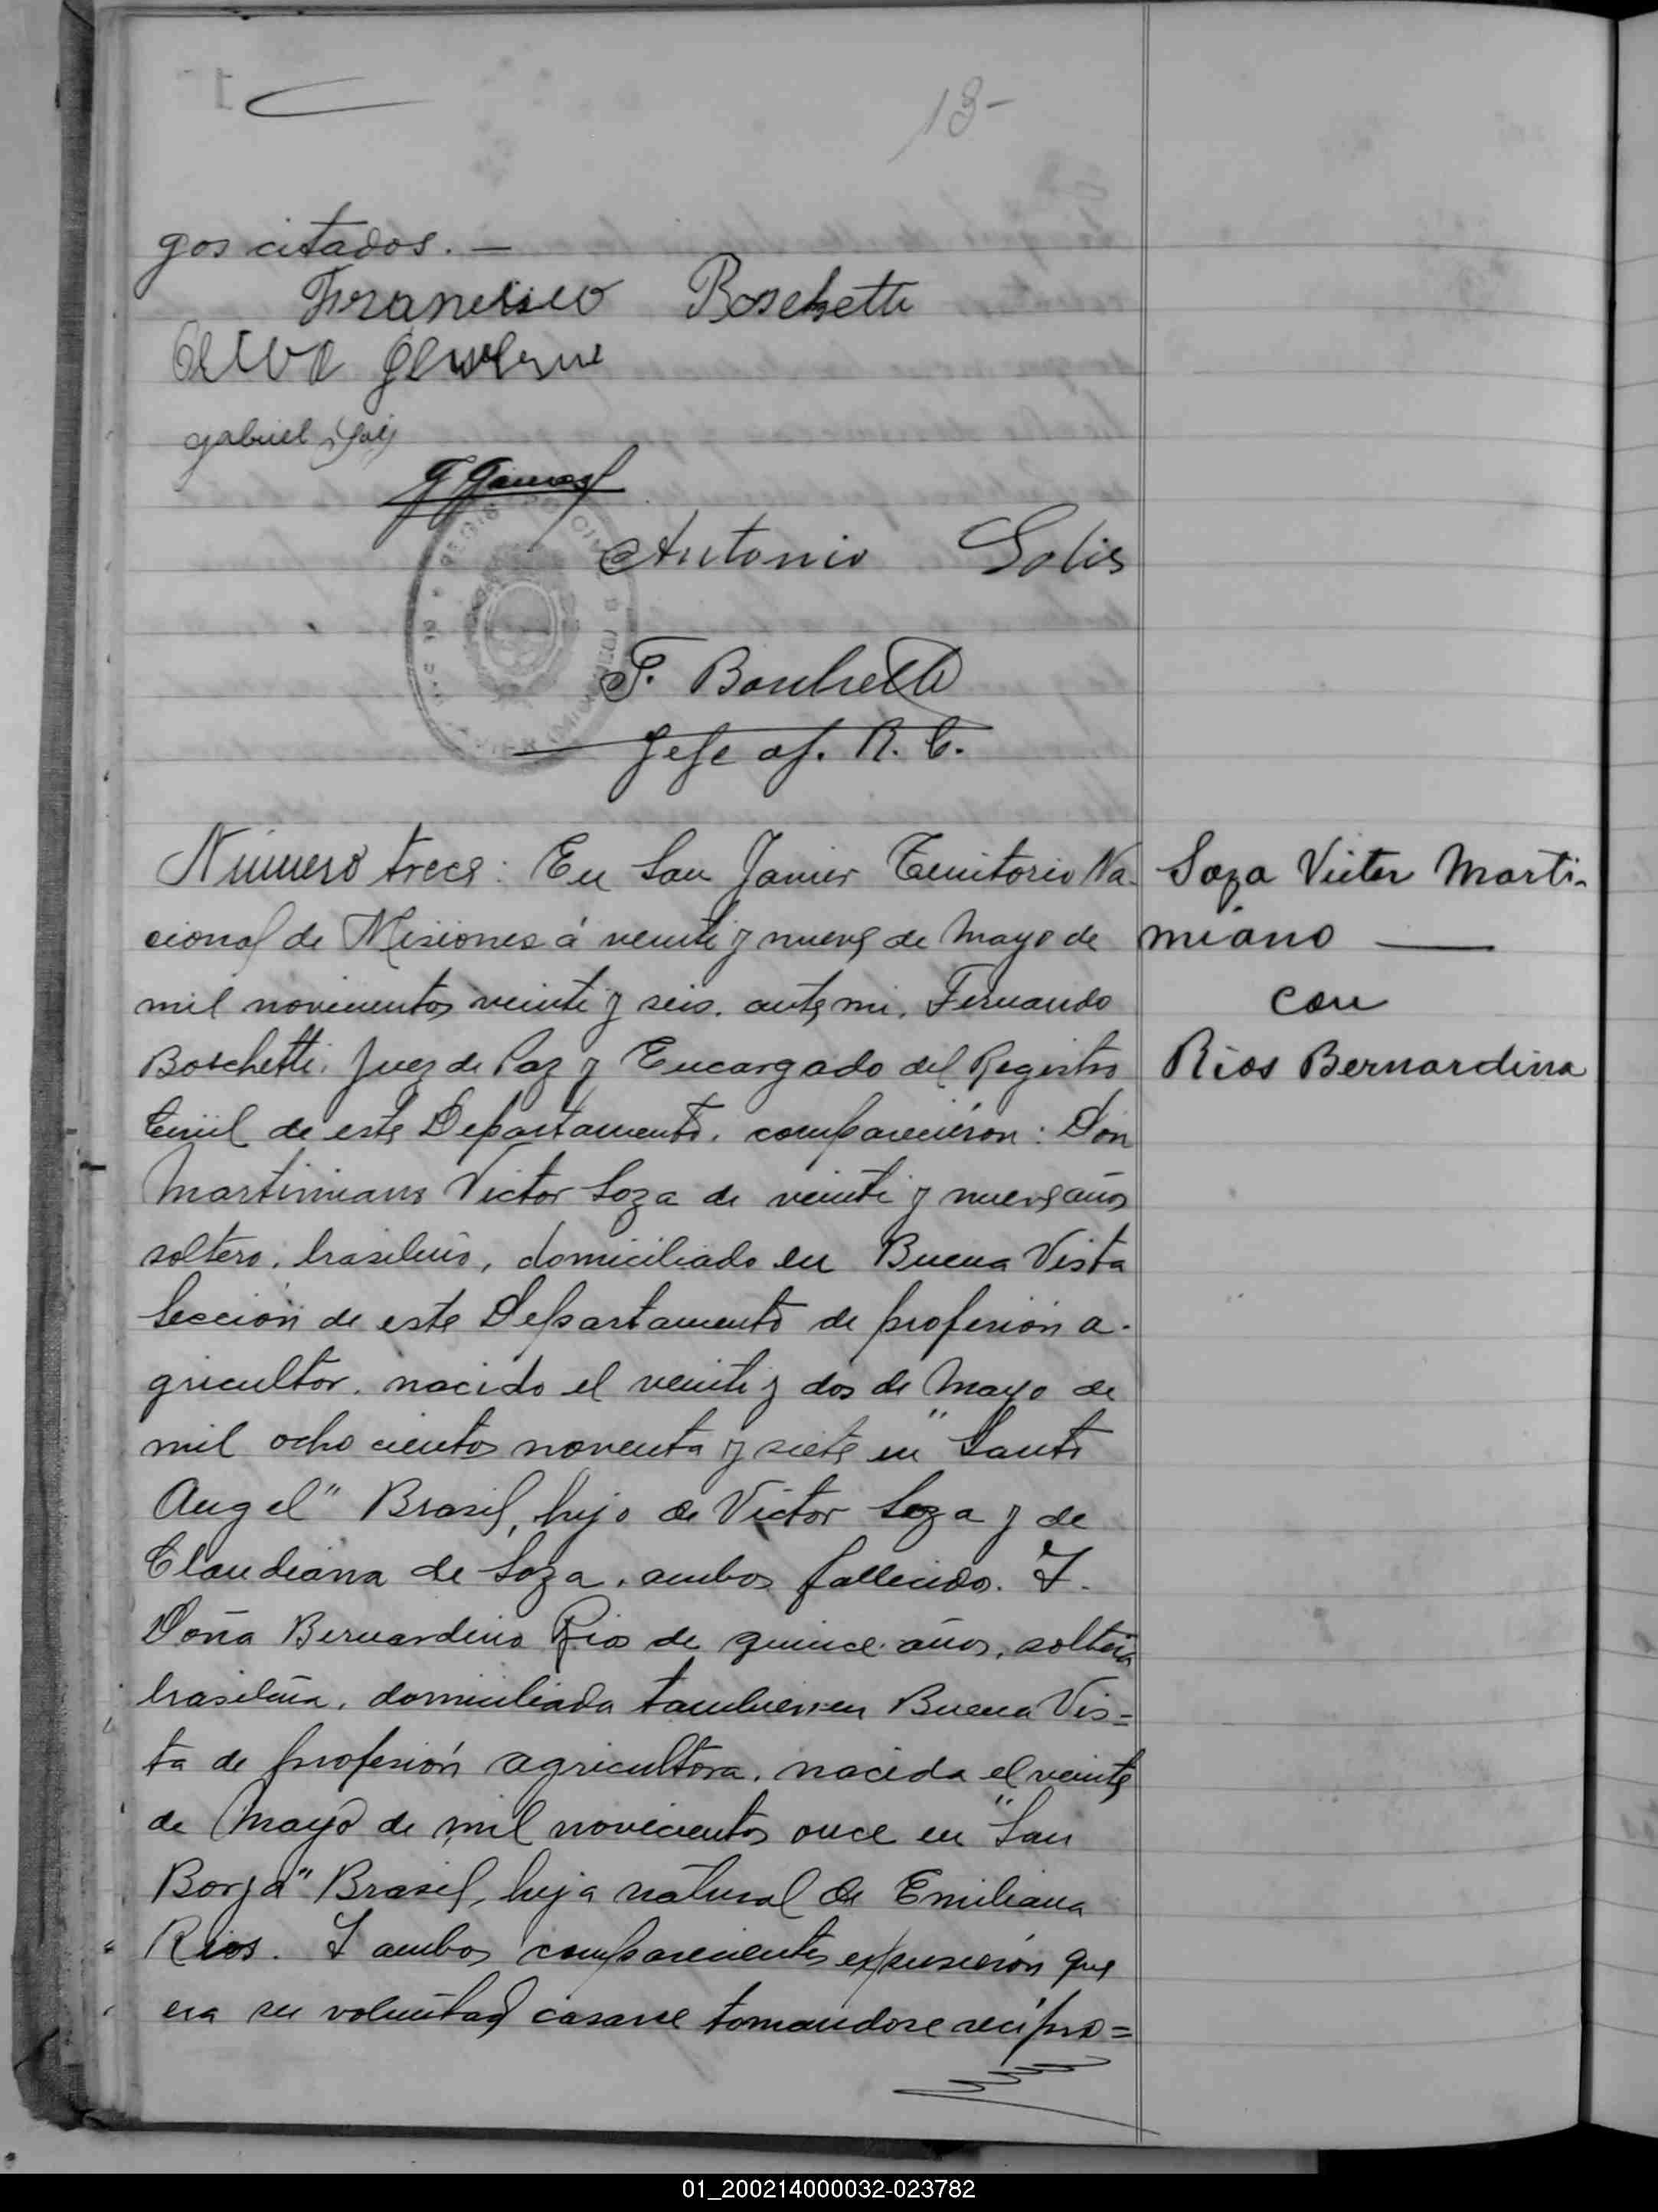 13-
gos citados. —
Francisco Boschetti
gabriel
Antonio Solis
F. Boschetti
Jefe of. R. C.
Número trece: En San Javier Territorio Na-
cional de Misiones á veinte y nueve de Mayo de
mil novecientos veinte y seis. ante mi, Fernando
Boschetti, Juez de Paz y Encargado del Registro
Civil de este Departamento, comparecieron: Don
Martiniano Victor Soza de veinte y nueve años
soltero, brasileño, domiciliado en Buena Vista
Sección de este Departamento de profesión a-
gricultor, nacido el veinte y dos de Mayo de
mil ocho cientos noventa y siete en "Santo
Angel" Brasil, hijo de Victor Soza y de
Claudiana de Soza, ambos fallecidos. Y.
Doña Bernardina Rios de quince años, soltera
brasileña, domiciliada tambien en Buena Vis=
ta de profesión agricultora, nacida el veinte
de Mayo de mil novecientos once en "San
Borja" Brasil, hija natural de Emiliana
Rios. Y ambos comparecientes expusieron que
era su voluntad casarse tomandose recipro=
Soza Victor Marti-
niano —
con
Rios Bernardina
01_200214000032-023782